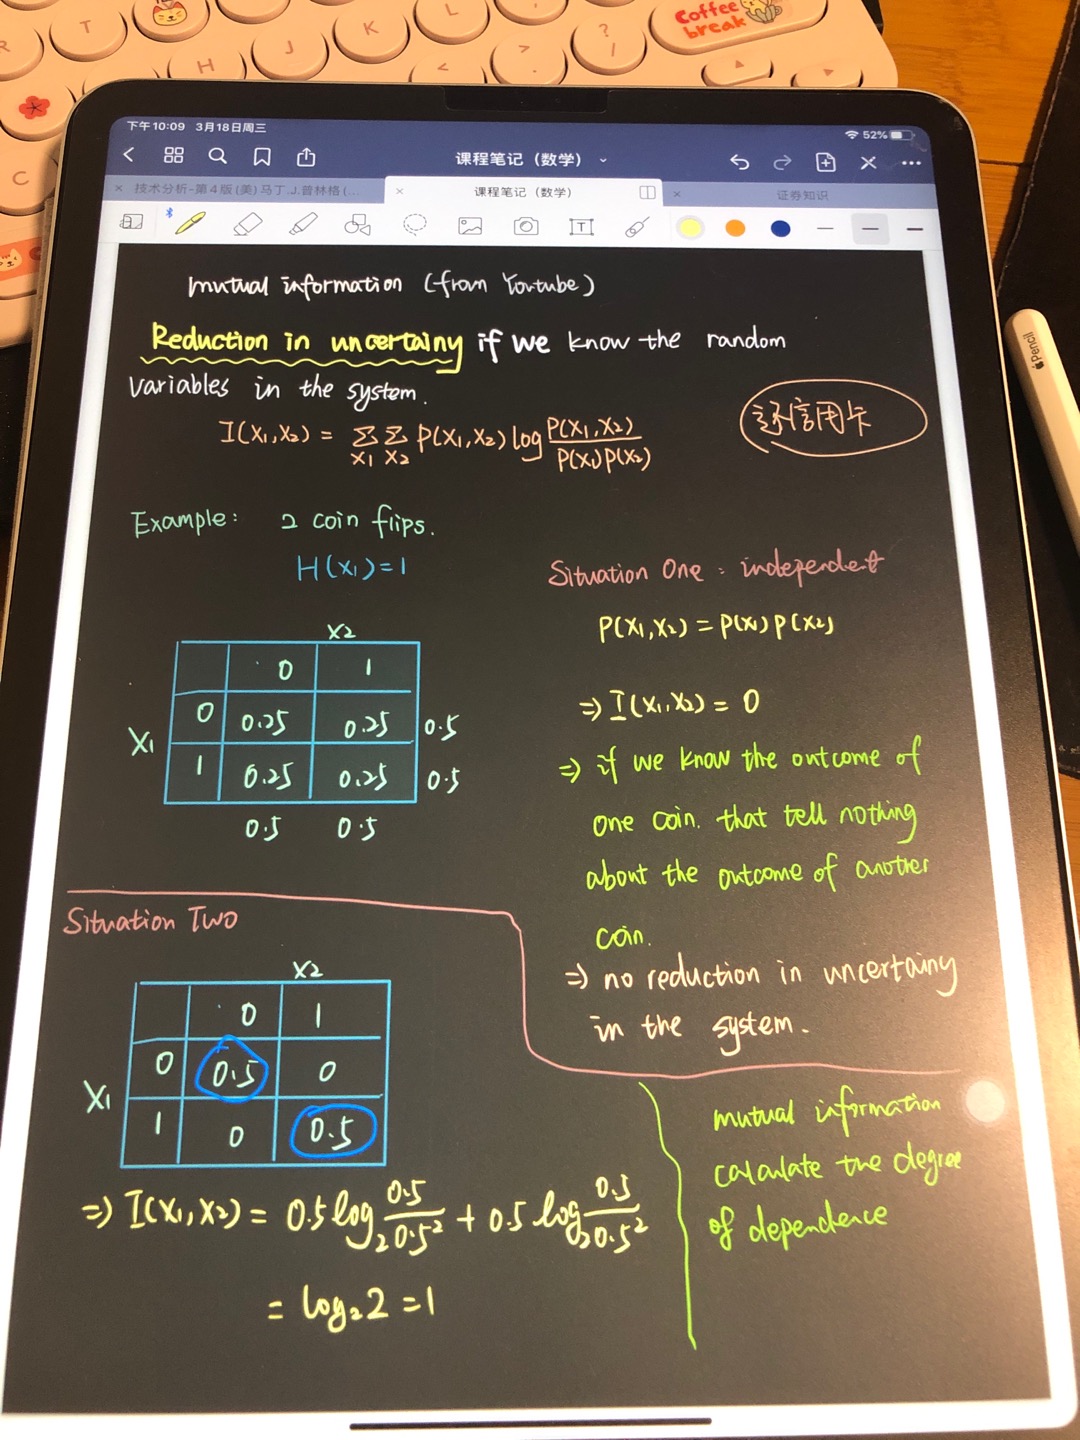 Coffee
break
R
T
H
J
K
L
C
下午10:09 3月18日周三
52%
课程笔记（数学）
技术分析-第4版(美)马丁.J.普林格(...
课程笔记（数学）
证券知识
T
Pencil
mutual information (from Youtube)
Reduction in uncertainy if we know the random
variables in the system.
还信用卡
I(X1,X2) = Σ Σ P(X1,X2) log P(X1,X2) / P(X1)P(X2)
X1 X2
Example: 2 coin flips.
H(X1)=1
Situation One: independent
P(X1,X2) = P(X1)P(X2)
X2
0 1
X1
0 0.25 0.25 0.5
1 0.25 0.25 0.5
0.5 0.5
⇒ I(X1,X2) = 0
⇒ if we know the outcome of
one coin. that tell nothing
about the outcome of another
coin.
⇒ no reduction in uncertainy
in the system.
Situation Two
X2
0 1
X1
0 0.5 0
1 0 0.5
⇒ I(X1,X2) = 0.5 log2 0.5/0.5² + 0.5 log2 0.5/0.5²
= log2 2 = 1
mutual information
calculate the degree
of dependence